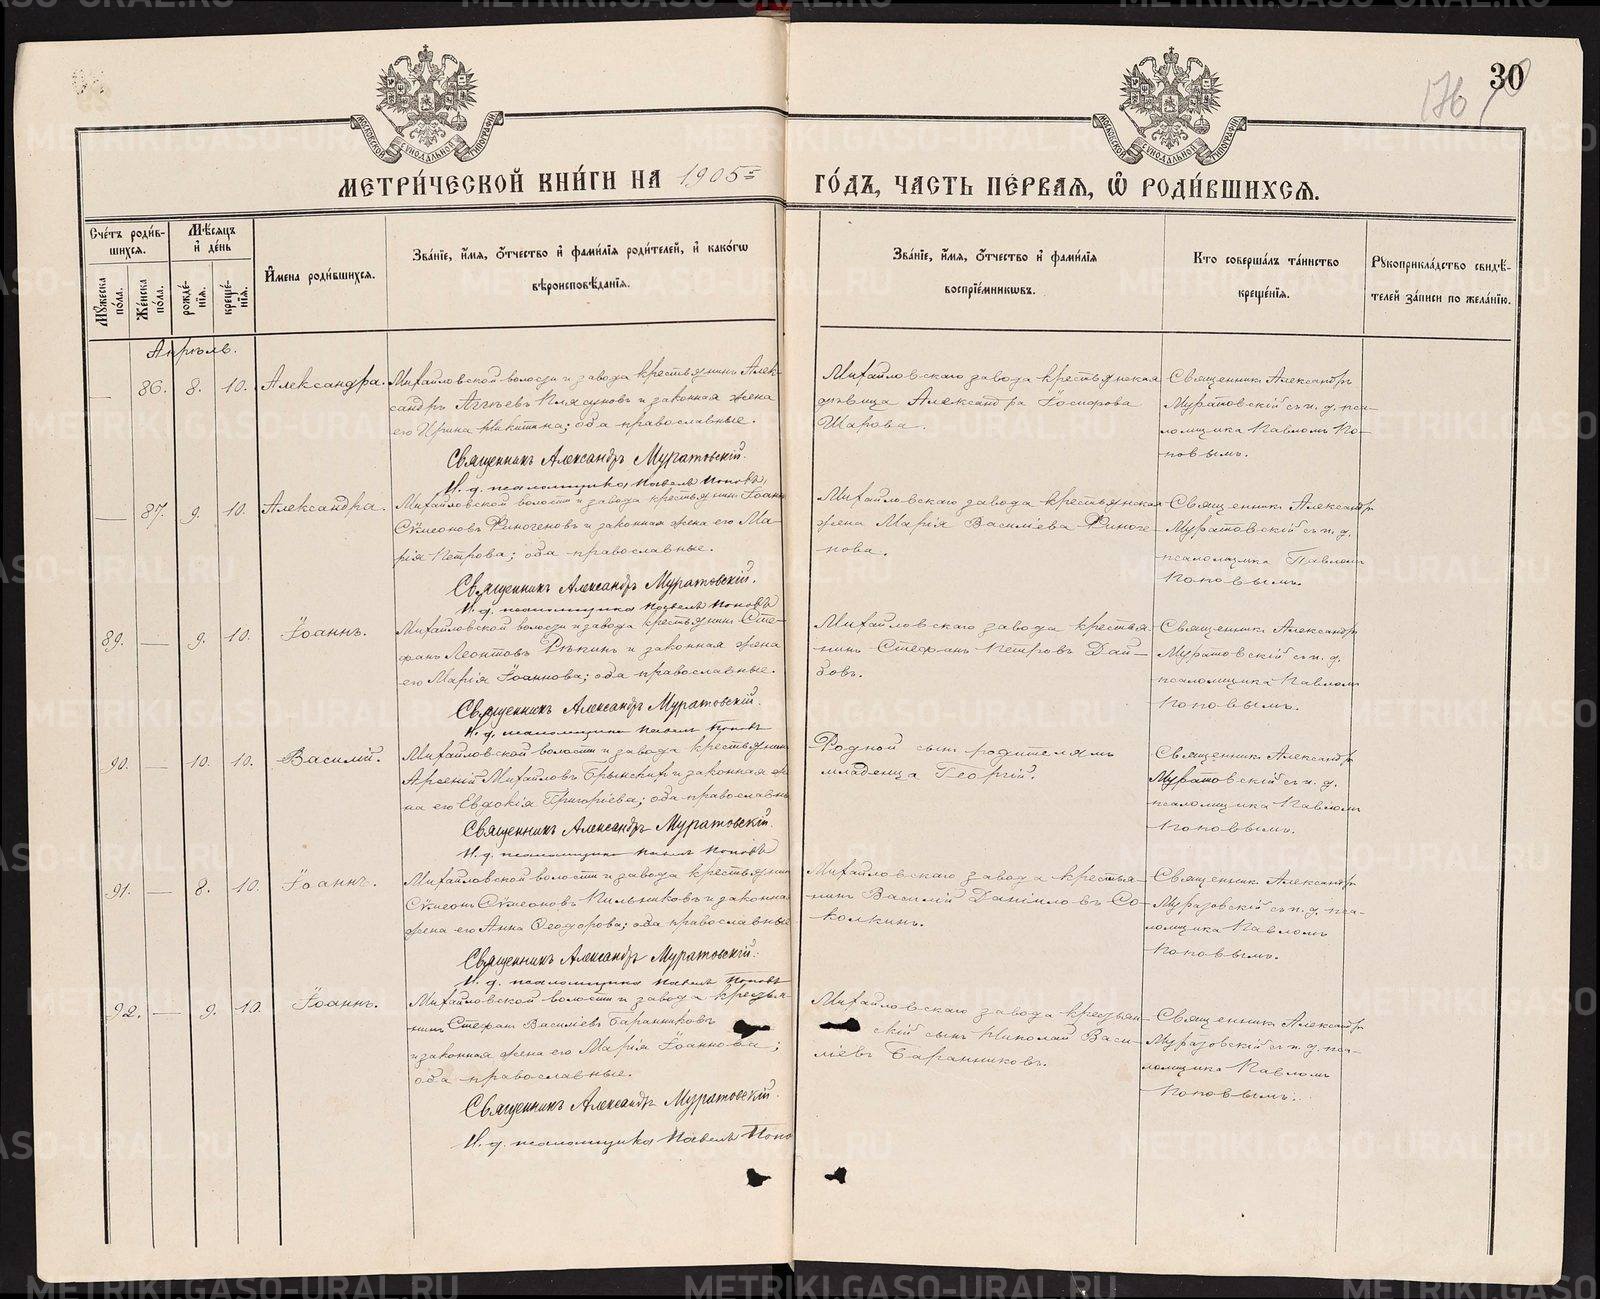 30
176
МОСКОВСКОЙ СУНОДАЛЬНОЙ ТИПОГРАФІИ
МОСКОВСКОЙ СУНОДАЛЬНОЙ ТИПОГРАФІИ
МЕТРИ́ЧЕСКОЙ КНИ́ГИ НА 1905 ГО́ДЪ, ЧАСТЬ ПЕ́РВАЯ, Ѡ РОДИ́ВШИХСЯ.
Сче́тъ роди́в-
шихся.
Мѣ́сяцъ
и҆ де́нь
Му́жеска
по́ла.
Же́нска
по́ла.
рожде́-
нїя.
креще́-
нїя.
И҆мена роди́вшихся.
Зва́нїе, и҆́мя, ѻ҆́тчество и҆ фами́лїя роди́телей, и҆ како́гѡ
вѣроисповѣ́данїя.
Зва́нїе, и҆́мя, ѻ҆́тчество и҆ фами́лїя
воспрїе́мникѡвъ.
Кто соверша́лъ та́инство
креще́нїя.
Рукоприкла́дство свидѣ́-
телей за́писи по жела́нїю.
Апрѣль.
— 86. 8. 10. Александра.
Михайловской волости и завода крестьянинъ Алек-
сандръ Аггѣевъ Плясуновъ и законная жена
его Ирина Никитина; оба православные.
Священникъ Александръ Муратовскій.
И. д. псаломщика Павелъ Поповъ.
Михайловскаго завода крестьянская
дѣвица Александра Іосифова
Шарова.
Священникъ Александръ
Муратовскій съ и. д. пса-
ломщика Павломъ По-
повымъ.
— 87. 9. 10. Александра.
Михайловской волости и завода крестьянинъ Іоаннъ
Сѵмеоновъ Финогеновъ и законная жена его Ма-
рія Петрова; оба православные.
Священникъ Александръ Муратовскій.
И. д. псаломщика Павелъ Поповъ
Михайловскаго завода крестьянская
жена Марія Василіева Финоге-
нова.
Священникъ Александръ
Муратовскій съ и. д.
псаломщика Павломъ
Поповымъ.
89. — 9. 10. Іоаннъ.
Михайловской волости и завода крестьянинъ Сте-
фанъ Леонтовъ Рѣкинъ и законная жена
его Марія Іоаннова; оба православные.
Священникъ Александръ Муратовскій.
И. д. псаломщика Павелъ Поповъ
Михайловскаго завода крестья-
нинъ Стефанъ Петровъ Дай-
бовъ.
Священникъ Александръ
Муратовскій съ и. д.
псаломщика Павломъ
Поповымъ.
90. — 10. 10. Василій.
Михайловской волости и завода крестьянинъ
Арсеній Михайловъ Брынскихъ и законная же-
на его Евдокія Григоріева; оба православные
Священникъ Александръ Муратовскій.
И. д. псаломщика Павелъ Поповъ
Родной сынъ родителямъ
младенца Георгій.
Священникъ Александръ
Муратовскій съ и. д.
псаломщика Павломъ
Поповымъ.
91. — 8. 10. Іоаннъ.
Михайловской волости и завода крестьянинъ
Сѵмеонъ Сѵмеоновъ Пильниковъ и законная
жена его Анна Ѳеодорова; оба православные
Священникъ Александръ Муратовскій.
И. д. псаломщика Павелъ Поповъ
Михайловскаго завода крестья-
нинъ Василій Даніиловъ Со-
колкинъ.
Священникъ Александръ
Муратовскій съ и. д. пса-
ломщика Павломъ
Поповымъ.
92. — 9. 10. Іоаннъ.
Михайловской волости и завода крестья-
нинъ Стефанъ Василіевъ Баранниковъ
и законная жена его Марія Іоаннова;
оба православные.
Священникъ Александръ Муратовскій.
И. д. псаломщика Павелъ Попо
Михайловскаго завода крестьян-
скій сынъ Николай Васи-
ліевъ Баранниковъ.
Священникъ Александръ
Муратовскій съ и. д. пса-
ломщика Павломъ
Поповымъ.